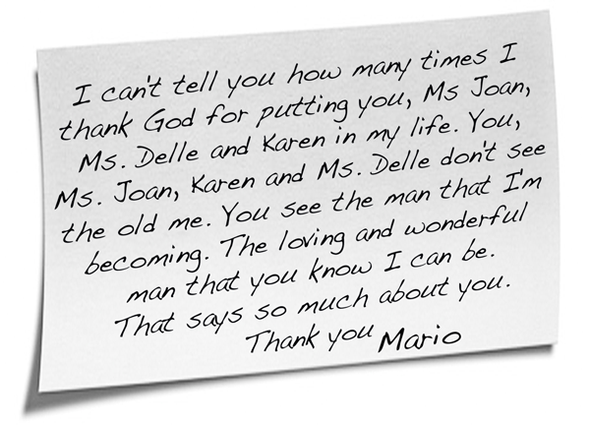 I can't tell you how many times I
thank God for putting you, Ms Joan,
Ms. Delle and Karen in my life. You,
Ms. Joan, Karen and Ms. Delle don't see
the old me. You see the man that I'm
becoming. The loving and wonderful
man that you know I can be.
That says so much about you.
Thank you Mario